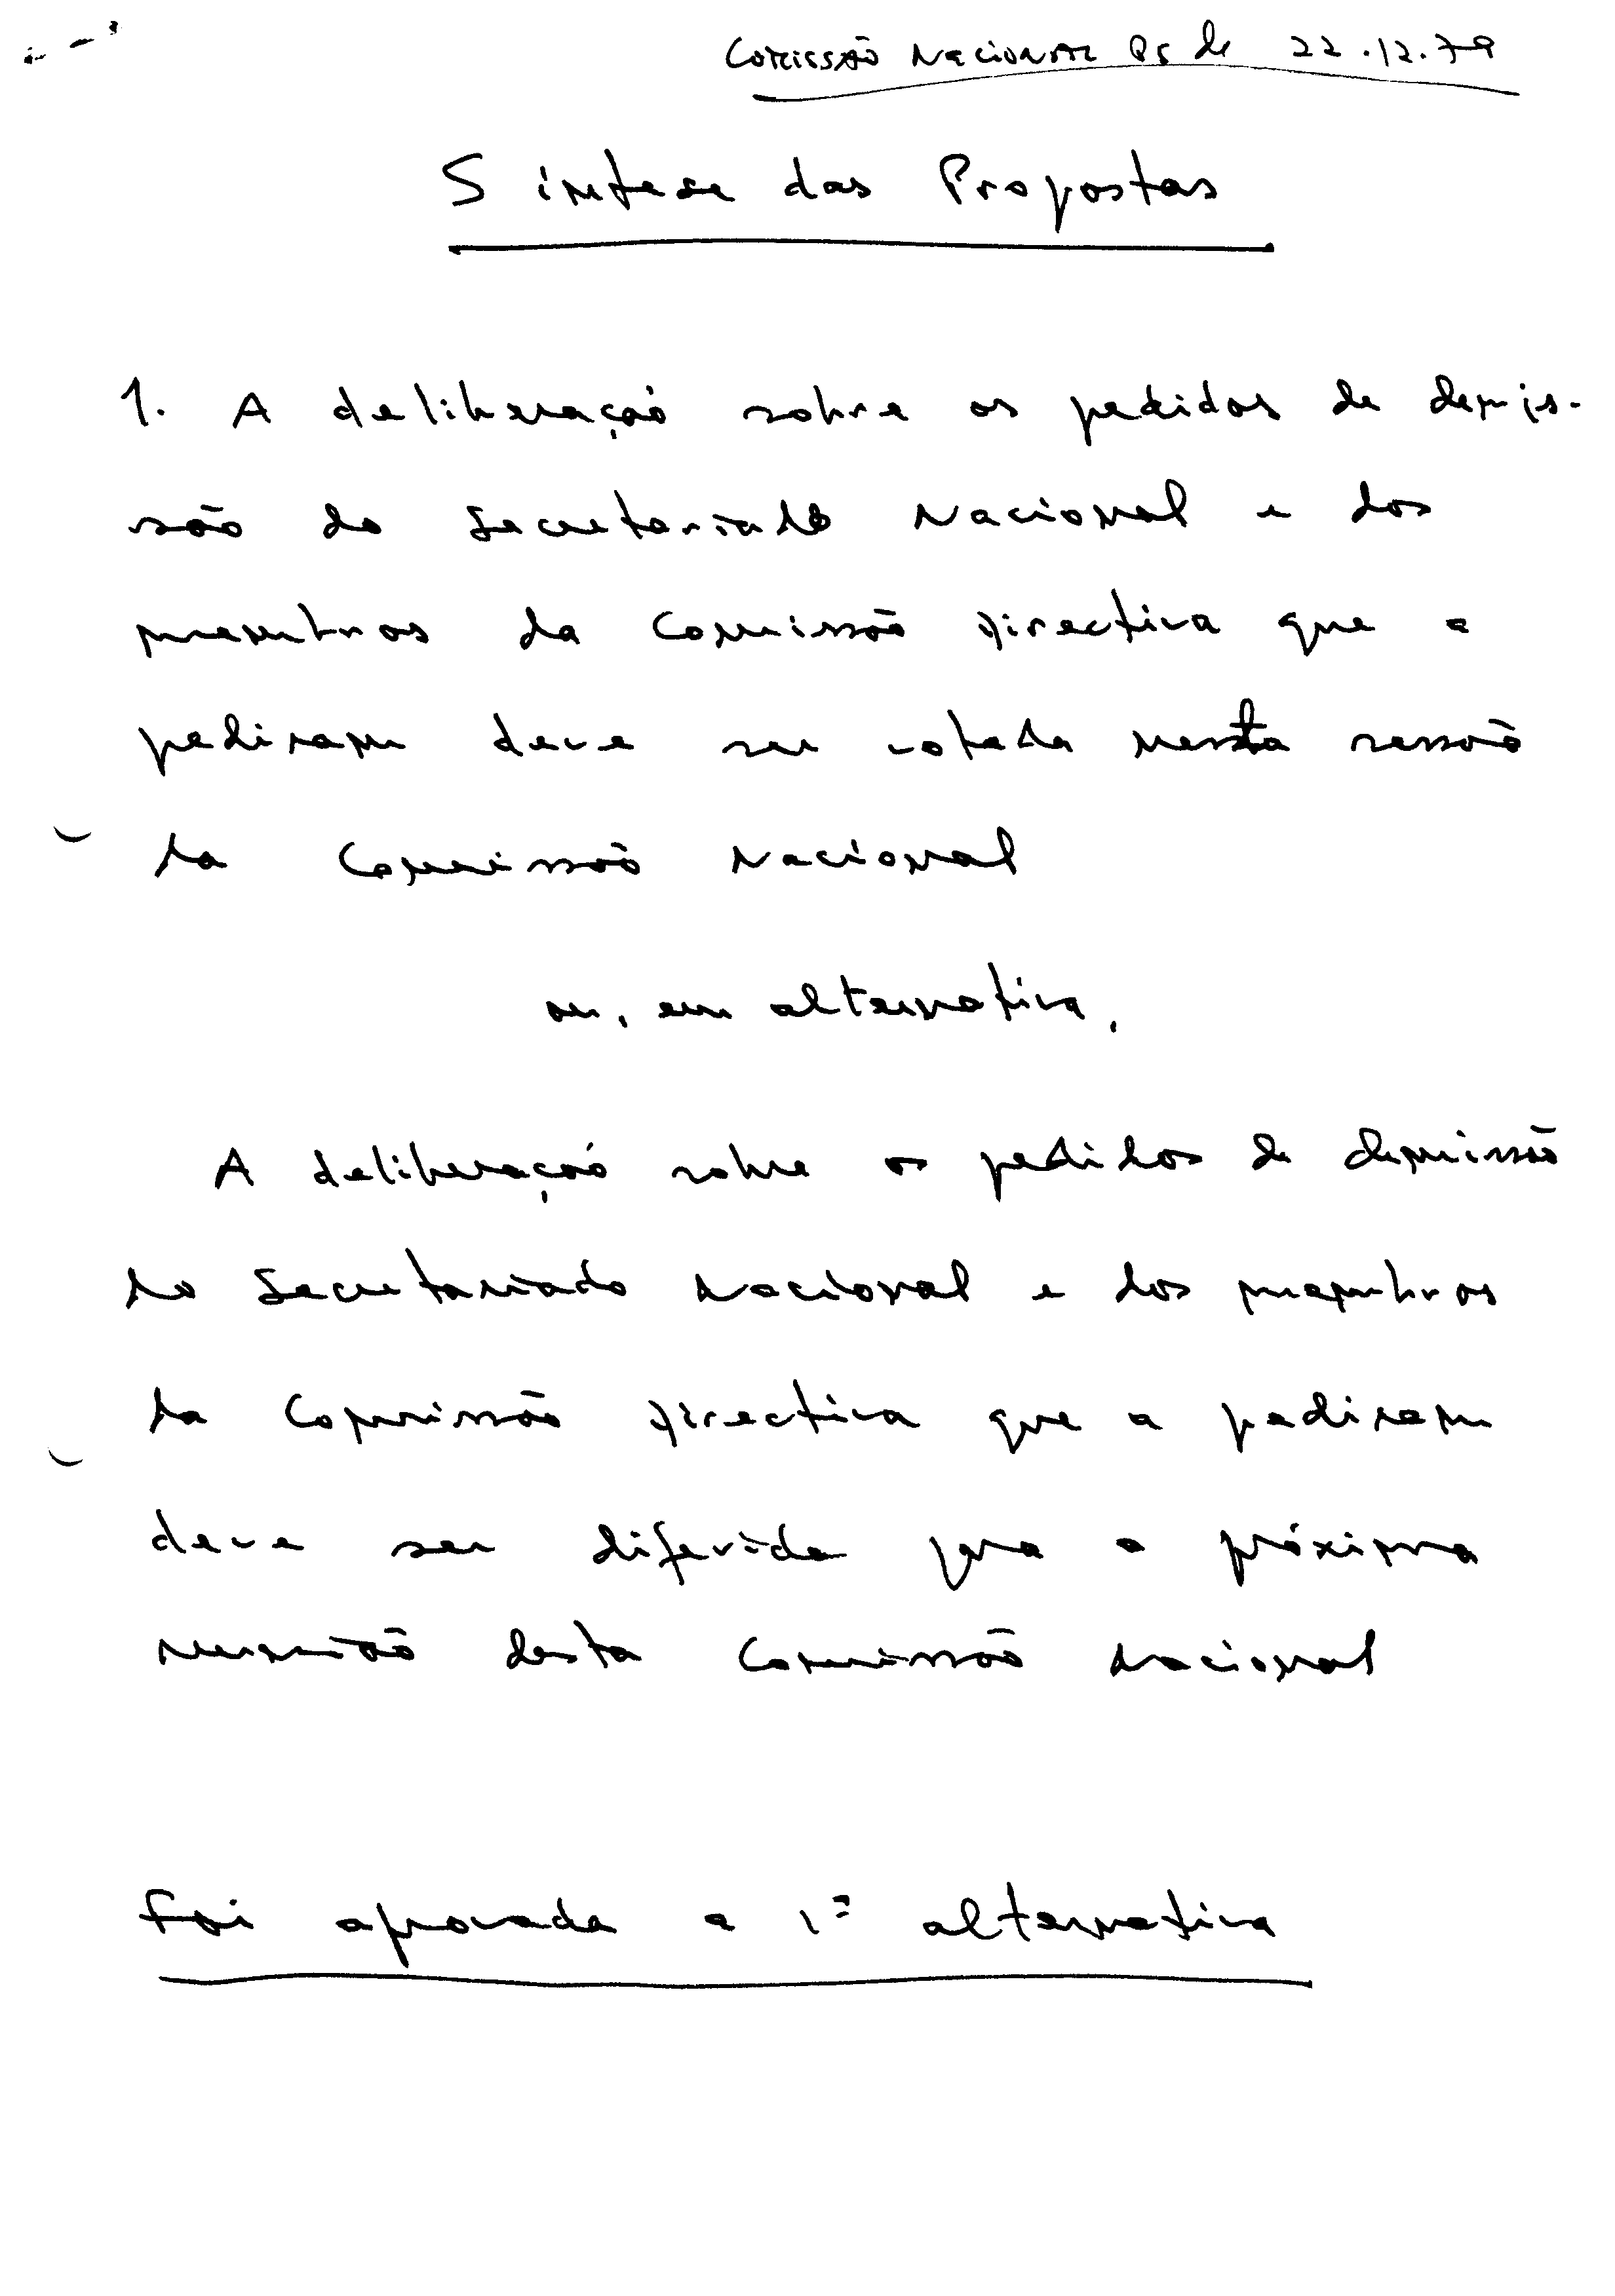 Comissão Nacional PS de 22.12.79
Síntese das Propostas
1. A deliberação sobre os pedidos de demis-
são do Secretariado Nacional e dos
membros da Comissão Directiva que a
pediram deve ser votada nesta sessão
da Comissão Nacional
ou, em alternativa,
A deliberação sobre os pedidos de demissão
do Secretariado Nacional e dos membros
da Comissão Directiva que a pediram
deve ser diferida para a próxima
reunião desta Comissão Nacional
Foi aprovada a 1ª alternativa